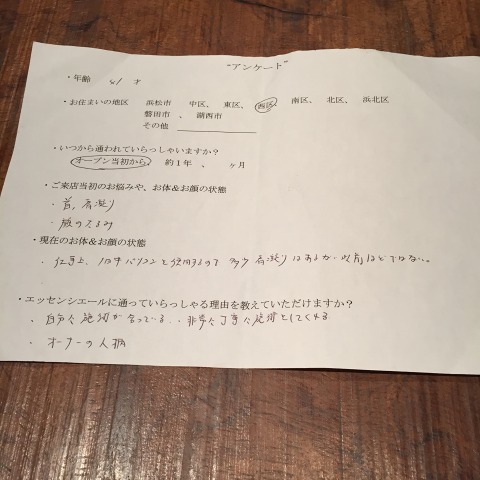 "アンケート"
・年齢 41 才
・お住まいの地区 浜松市 中区、 東区、 西区、 南区、 北区、 浜北区
磐田市 、 湖西市
その他
・いつから通われていらっしゃいますか?
オープン当初から、 約1年 、 ヶ月
・ご来店当初のお悩みや、お体&お顔の状態
・首,肩凝り
・顔のたるみ
・現在のお体&お顔の状態
・仕事上、1日中パソコンを使用するので 多少肩凝りはあるが以前ほどではない。
・エッセンシエールに通っていらっしゃる理由を教えていただけますか?
・自分に施術が合っている。・非常に丁寧に施術をしてくれる
・オーナーの人柄